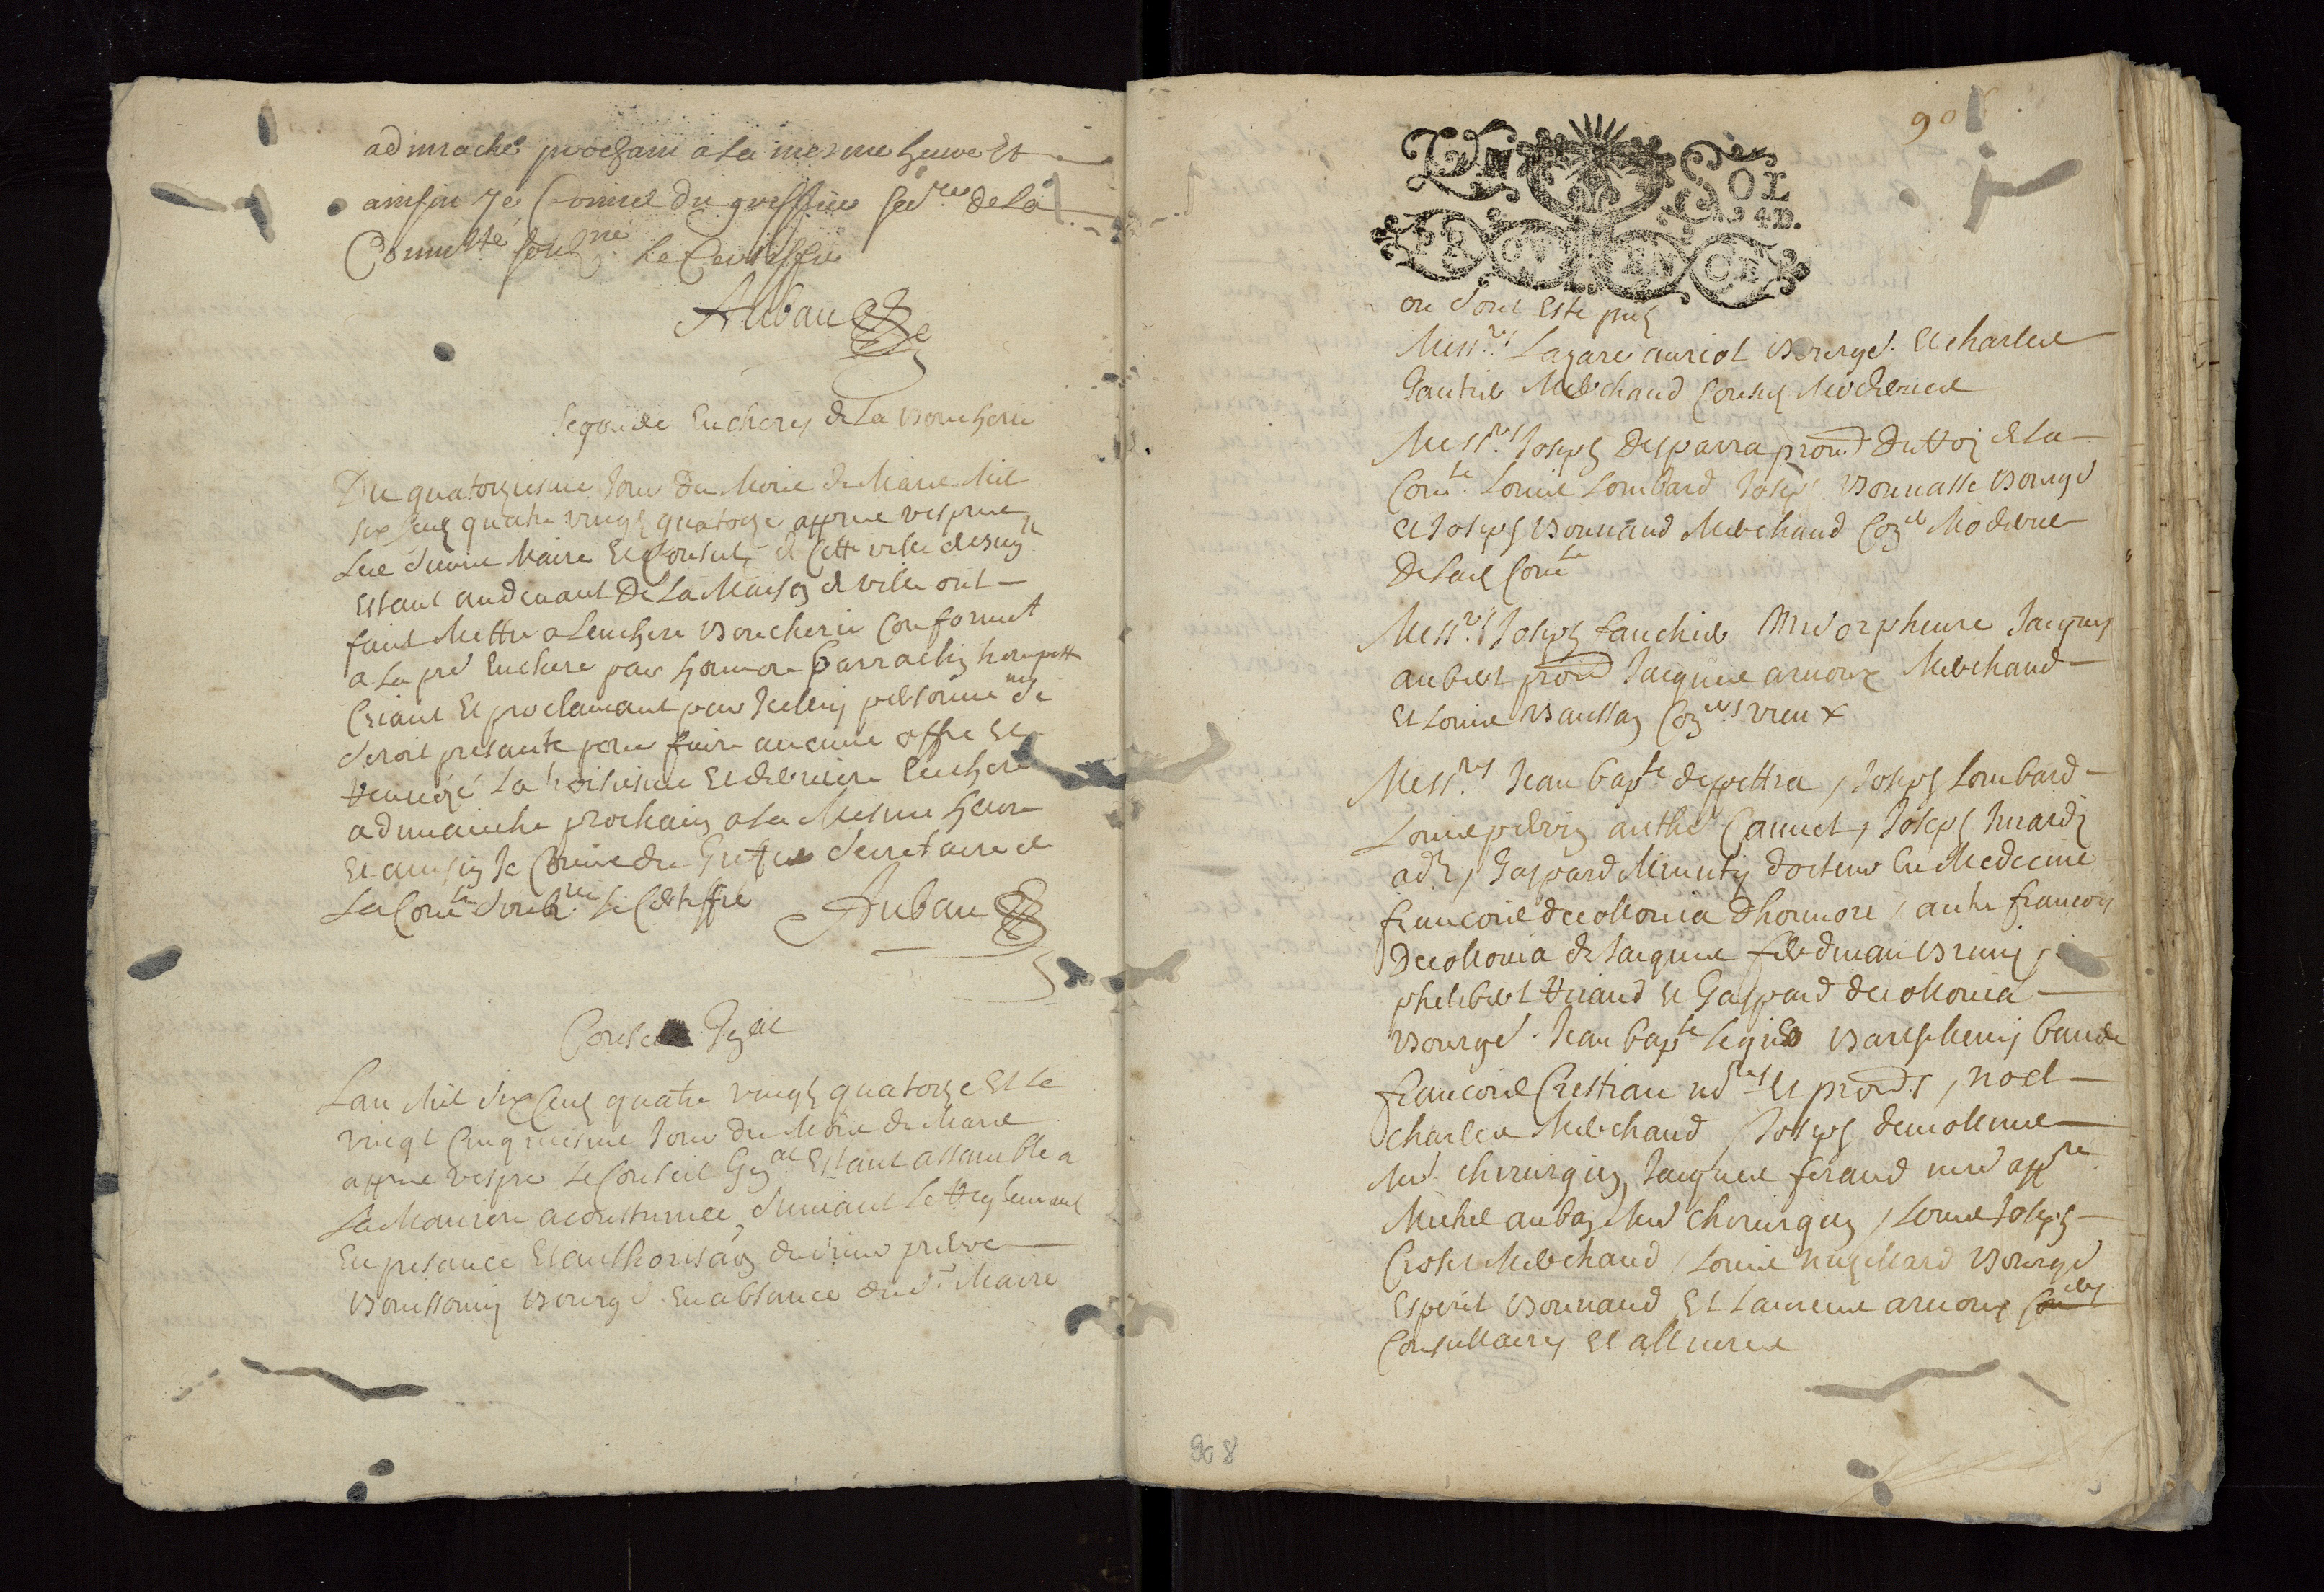 adimache prochain a la mesme heure et
ainsin je Commis du greffier secre de la
Commte soubne le Certiffie
Auban
Segonde Encheres de la Boucherie
Du quatorziesme Jour du Mois de Mars Mil
six Cens quatre vingts quatorze appres vespres
les sieurs Maire Et Consuls de Cette ville
Estant audevant De La Maison de ville ont
faict Mettre a Lenchere Boucherie Conformet
a La pre Enchere par honnore Barrachin trompette
Criant Et proclamant par Icelluy personne ne
seroit presante pour faire aucune offre Et
Renvoyé La troisiesme Et derniere Enchere
adimanche prochain a La Mesme heure
Et ainsin Je Commis du Greffe Secretaire de
La Comte soubne le Certiffie
Auban
Conseil Gnal
Lan Mil six Cens quatre vingts quatorze Et le
vingt Cinquiesme Jour du Mois de Mars
appres vespres Le Conseil Gnal Estant assamble a
La Maniere acoustumee, suivant Le Reglement
En presance Et authorisaon du sieur pierre
Boussonin Bourgs Enabsance du sr Maire
90
UN SOL
4D.
PROVENCE
ou sont Este pns
Messrs Lazare auriol Bourgs Et charles
Gautier Merchand Consuls Modernes
Messrs Joseph Desparra procur Du Roy de La
Comte Louis Lombard Joseph Bonnasse Bourgs
et Joseph Bonnaud Merchand Coners Modernes
De Lad Comte
Messrs Joseph fauchier Me orpheuvre Jacques
aubert procur Jacques arnoux Merchand
Et Louis Baussan Coners vieux
Messrs Jean bapte depettra, Joseph Lombard
Louis pelvin anthe Camet, Joseph Jirardin
adt, Gaspard Minuty docteur En Medecine
francois decollonia dhonnore, autre francois
Decollonia de Jacques ferdinan Brunj,
philibert Giraud Et Gaspard decollonia
Bourgs Jean bapte Segier Barthelemy baude
francois Crestian nores Et procurs, noel
charles Merchand, Joseph demollenne
Me chirurgien, Jacques feraud me appre
Michel auban Me chirurgien, Louis Joseph
Croset Merchand, Louis Bourgs
Esperit Bonnaud Et Laurens arnoux
Conseillaires Et allivres
908